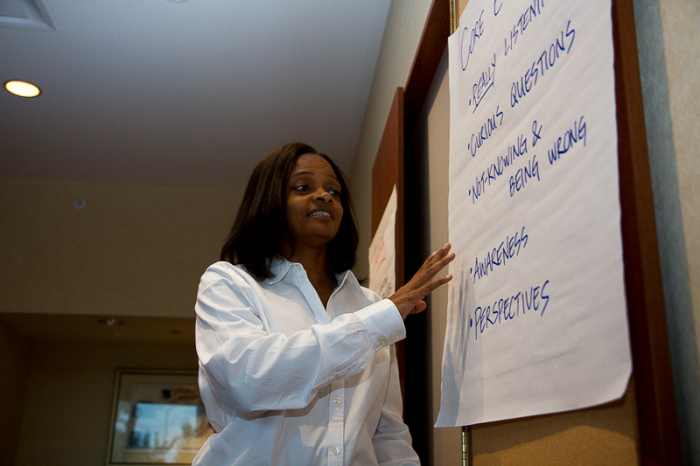 CORE
• REALLY LISTENING
• CURIOUS QUESTIONS
• NOT-KNOWING &
BEING WRONG
• AWARENESS
• PERSPECTIVES